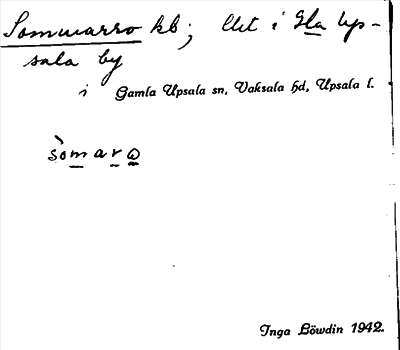 Sommarro kb; litet i Gla Up-
sala by
i Gamla Upsala sn, Vaksala hd, Upsala l.
sòmarω
Inga Löwdin 1942.